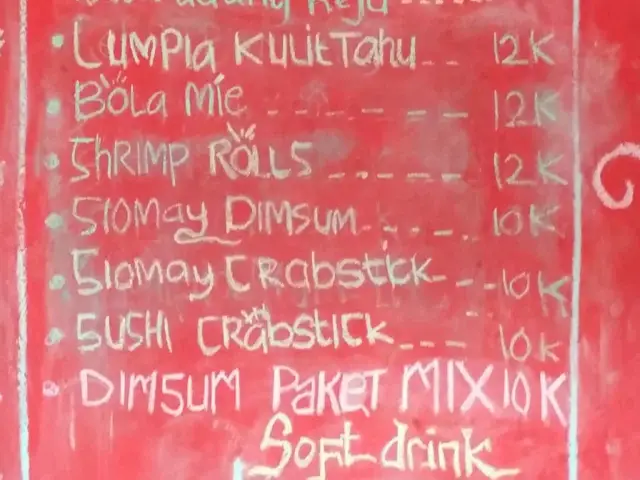 Keju
• LUMPIA KULIT TAHU -- 12K
• BOLA MIE ------ 12K
• SHRIMP ROLLS ----- 12K
• SIOMAY DIMSUM ----- 10K
• SIOMAY CRABSTICK --- 10K
• SUSHI CRABSTICK --- 10K
• DIMSUM PAKET MIX 10K
Soft drink